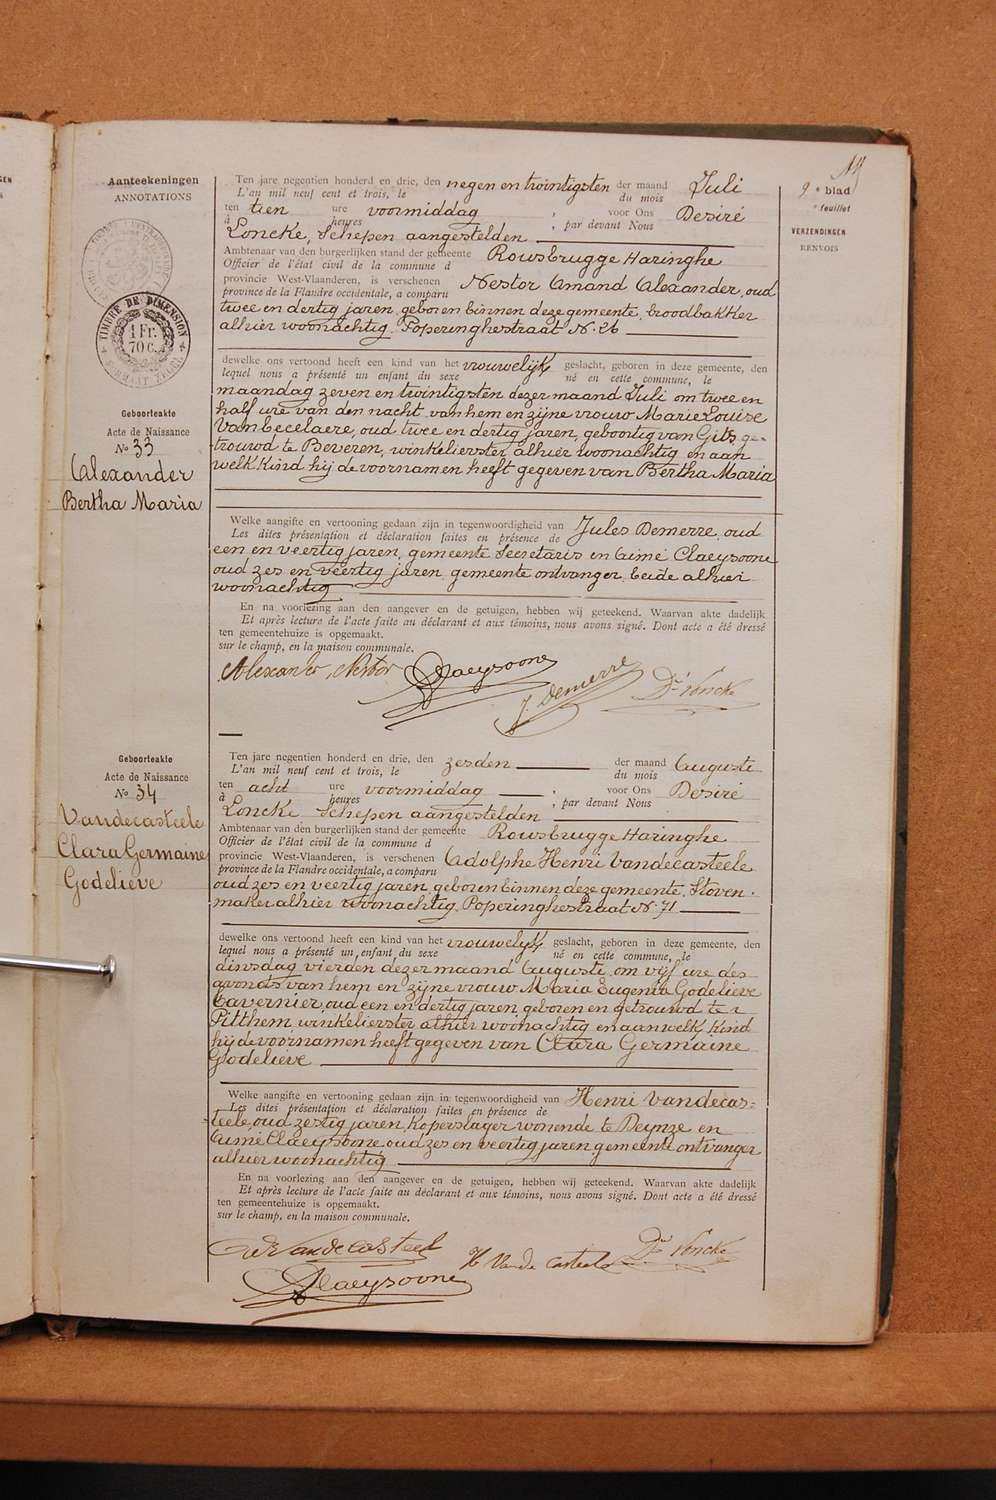 Aanteekeningen
ANNOTATIONS
9e blad
e feuillet
VERZENDINGEN
RENVOIS
TIMBRE DE DIMENSION
1 Fr.
70 c.
Geboorteakte
Acte de Naissance
No 33
Alexander
Bertha Maria
Ten jare negentien honderd en drie, den negen en twintigsten der maand Juli
L'an mil neuf cent et trois, le du mois
ten tien ure voormiddag , voor Ons Desiré
à heures , par devant Nous
Loncke, Schepen aangestelden
Ambtenaar van den burgerlijken stand der gemeente Rousbrugge Haringhe
Officier de l'état civil de la commune d
provincie West-Vlaanderen, is verschenen Nestor Amand Alexander, oud
province de la Flandre occidentale, a comparu
twee en dertig jaren, geboren binnen deze gemeente, broodbakker
alhier woonachtig Poperinghestraat Nr 26
dewelke ons vertoond heeft een kind van het vrouwelijk geslacht, geboren in deze gemeente, den
lequel nous a présenté un enfant du sexe né en cette commune, le
maandag zeven en twintigsten dezer maand Juli om twee en
half ure van den nacht van hem en zijne vrouw Marie Louise
Van Eecelaere, oud twee en dertig jaren, geboortig van Gits ge-
trouwd te Beveren, winkelierster alhier woonachtig en aan
welk kind hij de voornamen heeft gegeven van Bertha Maria
Welke aangifte en vertooning gedaan zijn in tegenwoordigheid van Jules Demerre, oud
Les dites présentation et déclaration faites en présence de
een en veertig jaren, gemeente Secretaris en Aimé Claeysoone
oud zes en veertig jaren gemeente ontvanger beide alhier
woonachtig
En na voorlezing aan den aangever en de getuigen, hebben wij geteekend. Waarvan akte dadelijk
Et après lecture de l'acte faite au déclarant et aux témoins, nous avons signé. Dont acte a été dressé
ten gemeentehuize is opgemaakt.
sur le champ, en la maison communale.
Alexander Nestor Claeysoone J. Demerre Dr Loncke
Geboorteakte
Acte de Naissance
No 34
Vandecasteele
Clara Germaine
Godelieve
Ten jare negentien honderd en drie, den zesden der maand Auguste
L'an mil neuf cent et trois, le du mois
ten acht ure voormiddag , voor Ons Desiré
à heures , par devant Nous
Loncke Schepen aangestelden
Ambtenaar van den burgerlijken stand der gemeente Rousbrugge Haringhe
Officier de l'état civil de la commune d
provincie West-Vlaanderen, is verschenen Adolphe Henri Vandecasteele
province de la Flandre occidentale, a comparu
oud zes en veertig jaren geboren binnen deze gemeente, Stoven-
maker alhier woonachtig Poperinghestraat Nr 71
dewelke ons vertoond heeft een kind van het vrouwelijk geslacht, geboren in deze gemeente, den
lequel nous a présenté un enfant du sexe né en cette commune, le
dinsdag vierden dezer maand Auguste om vijf ure des
avonds van hem en zijne vrouw Maria Eugenia Godelieve
Tavernier, oud een en dertig jaren geboren en getrouwd te
Pitthem winkelierster alhier woonachtig en aan welk kind
hij de voornamen heeft gegeven van Clara Germaine
Godelieve
Welke aangifte en vertooning gedaan zijn in tegenwoordigheid van Henri Vandecas-
Les dites présentation et déclaration faites en présence de
teele, oud zestig jaren Koperslager wonende te Deynze en
Aimé Claeysoone oud zes en veertig jaren gemeente ontvanger
alhier woonachtig
En na voorlezing aan den aangever en de getuigen, hebben wij geteekend. Waarvan akte dadelijk
Et après lecture de l'acte faite au déclarant et aux témoins, nous avons signé. Dont acte a été dressé
ten gemeentehuize is opgemaakt.
sur le champ, en la maison communale.
Vandecasteele H Vande Casteele Dr Loncke
Claeysoone